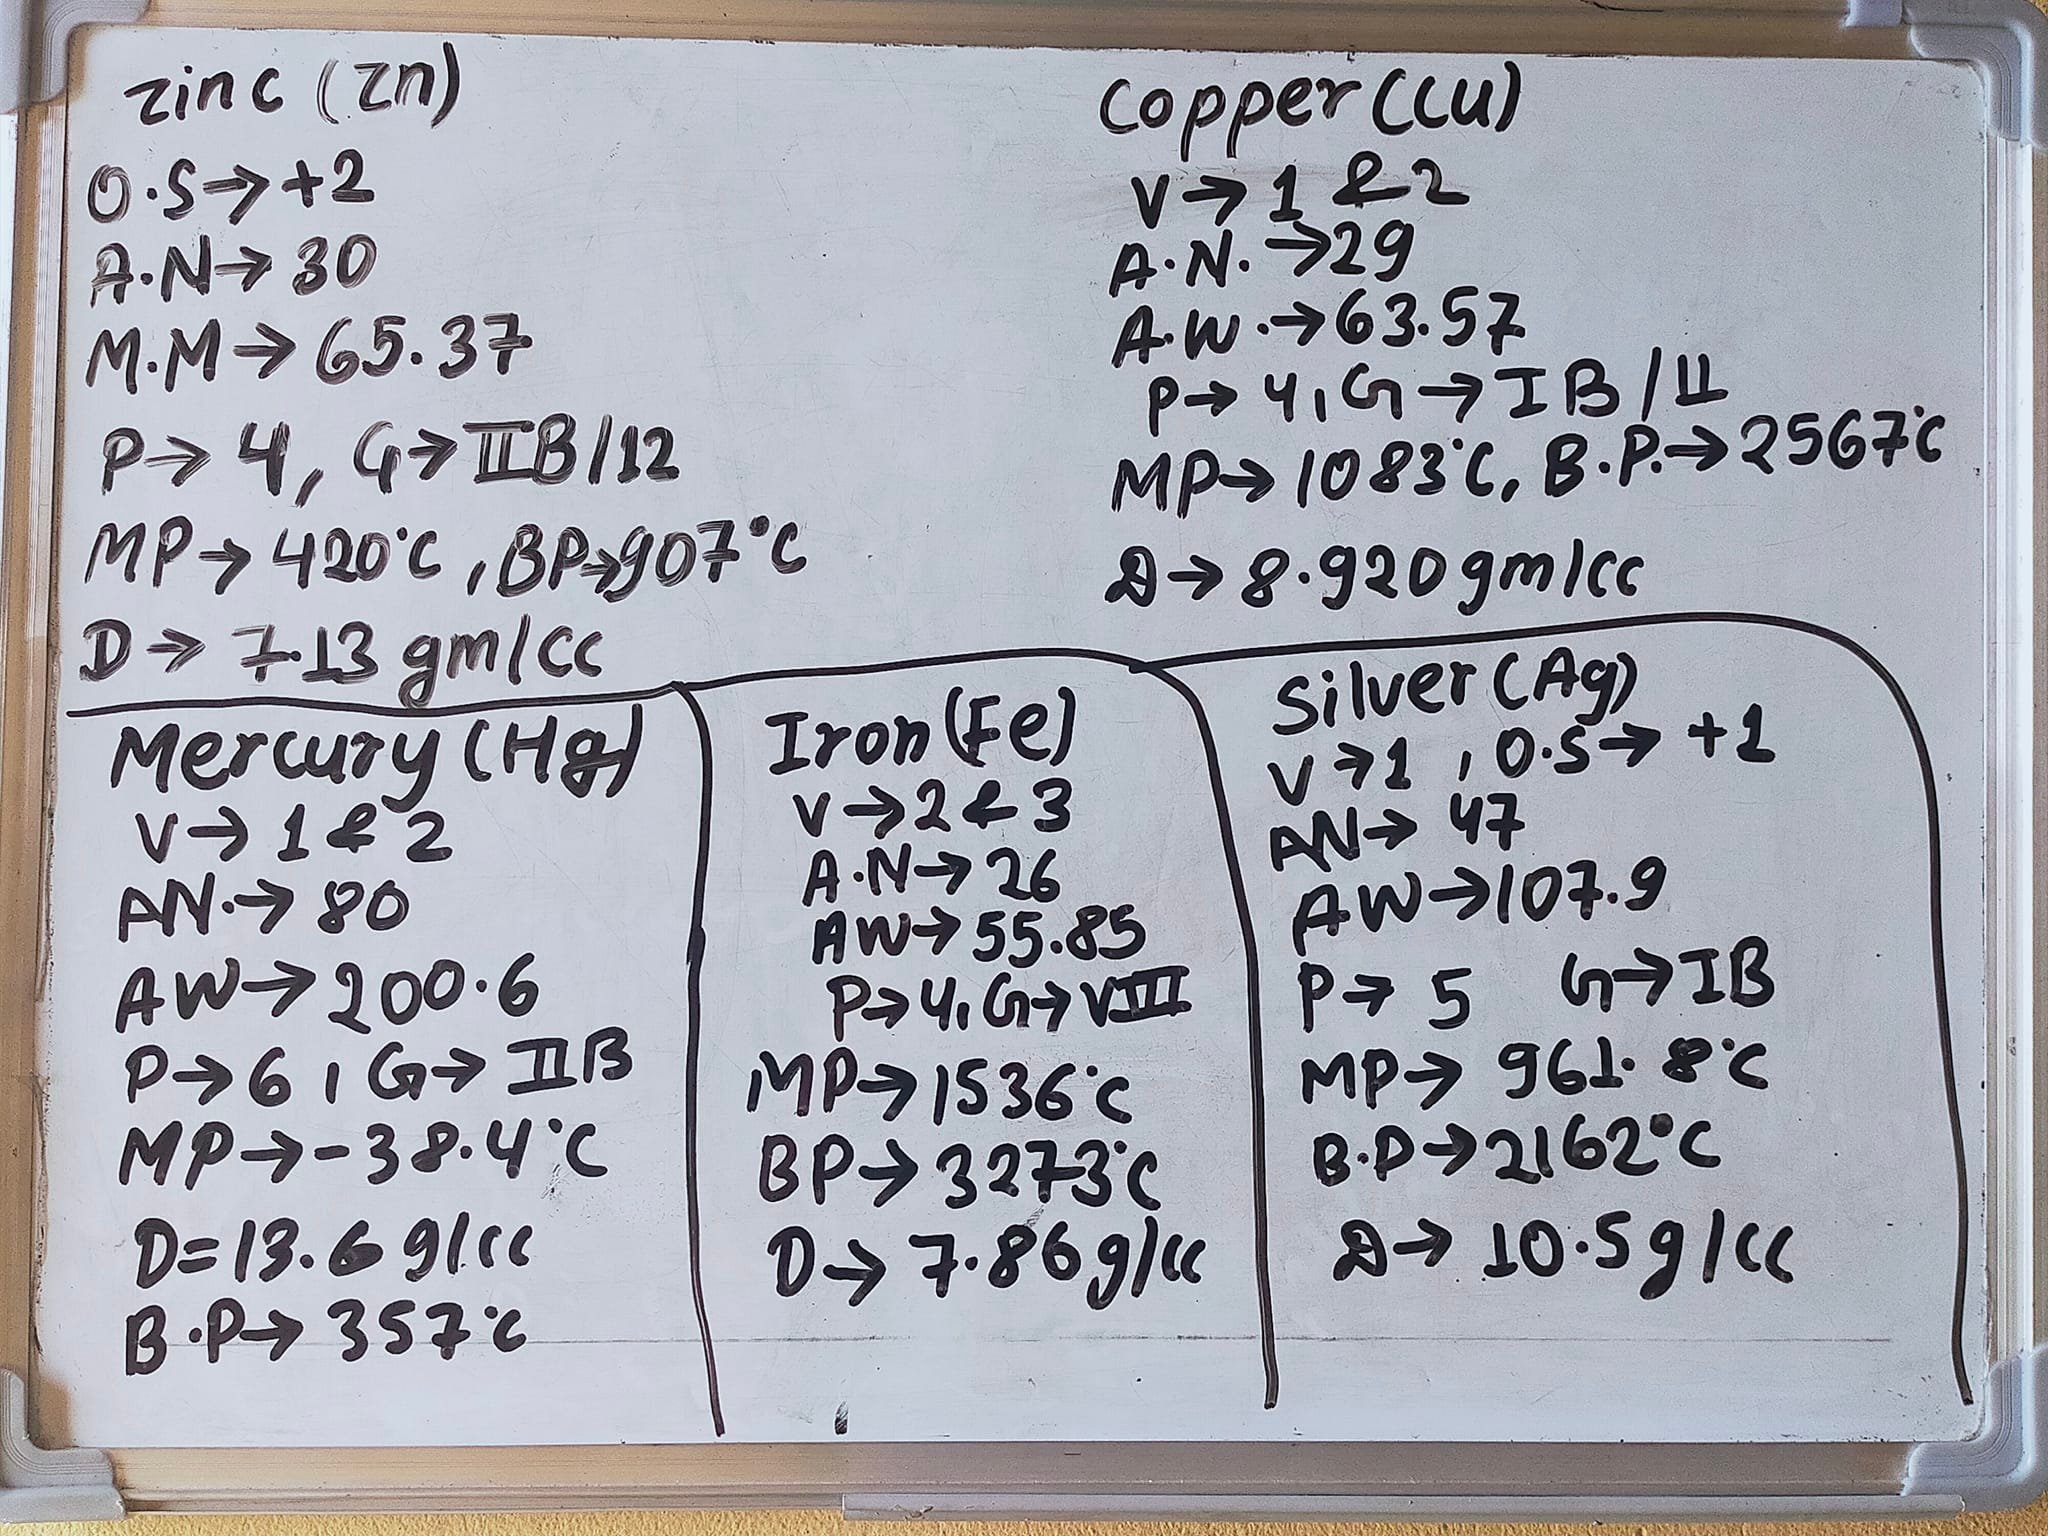 Zinc (Zn)
O.S→+2
A.N→30
M.M→65.37
P→4, G→IIB/12
MP→420°C, BP→907°C
D→7.13 gm/cc
Copper (Cu)
V→1 & 2
A.N.→29
A.W.→63.57
P→4, G→IB/11
MP→1083°C, B.P.→2567°C
D→8.920gm/cc
Mercury (Hg)
V→1 & 2
AN.→80
AW→200.6
P→6, G→IIB
MP→-38.4°C
D=13.6 g/cc
B.P→357°C
Iron (Fe)
V→2 & 3
A.N→26
AW→55.85
P→4, G→VIII
MP→1536°C
BP→3273°C
D→7.86g/cc
Silver (Ag)
V→1, O.S→+1
AN→47
AW→107.9
P→5 G→IB
MP→961.8°C
B.P→2162°C
D→10.5g/cc